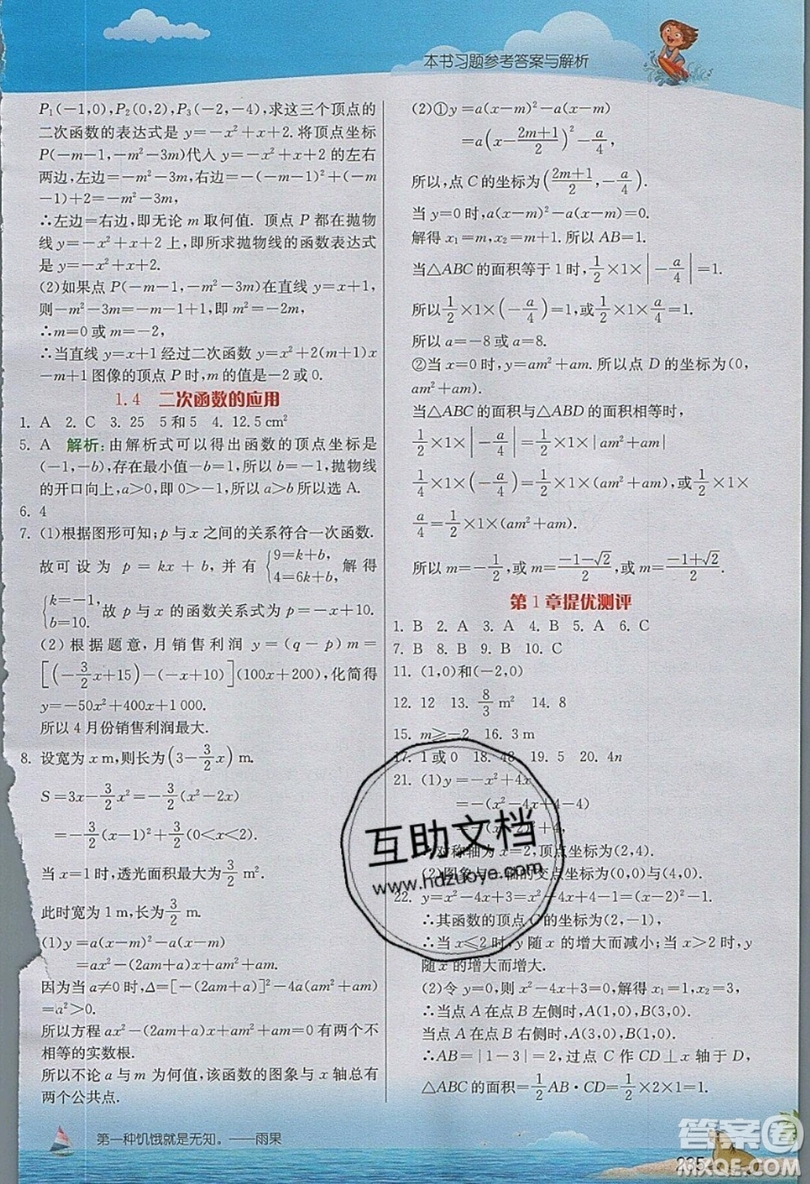 本书习题参考答案与解析
P₁(-1,0),P₂(0,2),P₃(-2,-4),求这三个顶点的
二次函数的表达式是 y=-x²+x+2.将顶点坐标
P(-m-1,-m²-3m)代入 y=-x²+x+2 的左右
两边,左边=-m²-3m,右边=-(-m-1)²+(-m
-1)+2=-m²-3m,
∴左边=右边,即无论 m 取何值. 顶点 P 都在抛物
线 y=-x²+x+2 上,即所求抛物线的函数表达式
是 y=-x²+x+2.
(2)如果点 P(-m-1,-m²-3m)在直线 y=x+1,
则-m²-3m=-m-1+1,即 m²=-2m,
∴m=0 或 m=-2,
∴当直线 y=x+1 经过二次函数 y=-x²-2(m+1)x
-m+1 图像的顶点 P 时,m 的值是-2 或 0.
1.4 二次函数的应用
1. A 2. C 3. 25 5 和 5 4. 12.5 cm²
5. A 解析:由解析式可以得出函数的顶点坐标是
(-1,-b),存在最小值-b=1,所以 b=-1,抛物线
的开口向上,a>0,即 0>-1,所以 a>b 所以选 A.
6. 4
7. (1)根据图形可知;p 与 x 之间的关系符合一次函数.
故可设为 p=kx+b,并有{9=k+b, 4=6k+b, 解得
{k=-1, b=10. 故 p 与 x 的函数关系式为 p=-x+10.
(2)根据题意,月销售利润 y=(q-p)m=
[(-3/2x+15)-(-x+10)](100x+200),化简得
y=-50x²+400x+1 000.
所以 4 月份销售利润最大.
8. 设宽为 x m,则长为(3-3/2x) m.
S=3x-3/2x²=-3/2(x²-2x)
=-3/2(x-1)²+3/2(0<x<2).
当 x=1 时,透光面积最大为3/2 m².
此时宽为 1 m,长为3/2 m.
(1)y=a(x-m)²-a(x-m)
=ax²-(2am+a)x+am²+am.
因为当 a≠0 时,Δ=[-(2am+a)]²-4a(am²+am)
=a²>0.
所以方程 ax²-(2am+a)x+am²+am=0 有两个不
相等的实数根.
所以不论 a 与 m 为何值,该函数的图象与 x 轴总有
两个公共点.
(2)①y=a(x-m)²-a(x-m)
=a(x-2m+1/2)²-a/4,
所以,点 C 的坐标为(2m+1/2,-a/4).
当 y=0 时,a(x-m)²-a(x-m)=0.
解得 x₁=m,x₂=m+1.所以 AB=1.
当△ABC 的面积等于 1 时,1/2×1×|-a/4|=1.
所以1/2×1×(-a/4)=1,或1/2×1×a/4=1.
所以 a=-8 或 a=8.
②当 x=0 时,y=am²+am.所以点 D 的坐标为(0,
am²+am).
当△ABC 的面积与△ABD 的面积相等时,
1/2×1×|-a/4|=1/2×1×|am²+am|
1/2×1×(-a/4)=1/2×1×(am²+am),或1/2×1×
a/4=1/2×1×(am²+am).
所以 m=-1/2,或 m=-1-√2/2,或 m=-1+√2/2.
第 1 章提优测评
1. B 2. A 3. A 4. B 5. A 6. C
7. B 8. B 9. B 10. C
11. (1,0)和(-2,0)
12. 12 13. 8/3 m² 14. 8
15. m≥-2 16. 3 m
17. 1 或 0 18. 48 19. 5 20. 4n
21. (1)y=-x²+4x
=-(x²-4x+4-4)
=-(x-2)²+4,
∴对称轴为 x=2,顶点坐标为(2,4).
(2)图象与 x 轴的交点坐标为(0,0)与(4,0).
22. y=x²-4x+3=x²-4x+4-1=(x-2)²-1.
∴其函数的顶点 C 的坐标为(2,-1),
∴当 x≤2 时,y 随 x 的增大而减小;当 x≥2 时,y
随 x 的增大而增大.
(2)令 y=0,则 x²-4x+3=0,解得 x₁=1,x₂=3.
∴当点 A 在点 B 左侧时,A(1,0),B(3,0).
当点 A 在点 B 右侧时,A(3,0),B(1,0).
∴AB=|1-3|=2,过点 C 作 CD⊥x 轴于 D,
△ABC 的面积=1/2AB·CD=1/2×2×1=1.
互助文档
www.hdzuoye.com
第一种饥饿就是无知。——雨果
235
答案圈
MXQE.COM